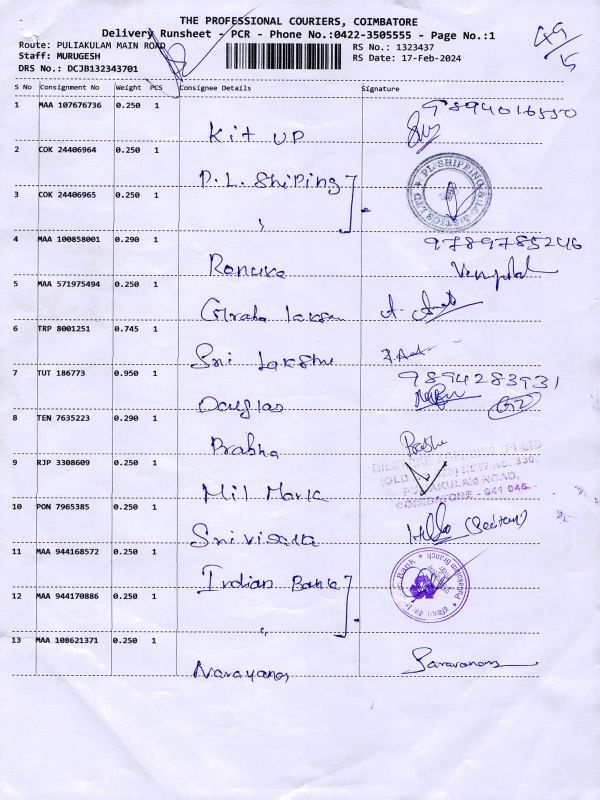 THE PROFESSIONAL COURIERS, COIMBATORE
Delivery Runsheet - PCR - Phone No.:0422-3505555 - Page No.:1
Route: PULIAKULAM MAIN ROAD
RS No.: 1323437
Staff: MURUGESH
RS Date: 17-Feb-2024
DRS No.: DCJB132343701
S No Consignment No Weight PCS Consignee Details Signature
1 MAA 107676736 0.250 1
Kit UP
2 COK 24406964 0.250 1
P.L. Shiping
3 COK 24406965 0.250 1
4 MAA 100858001 0.290 1
9789785246
5 MAA 571975494 0.250 1
6 TRP 8001251 0.745 1
Sri
7 TUT 186773 0.950 1
9894283931
Douglas
8 TEN 7635223 0.290 1
Prabha
9 RJP 3308609 0.250 1
PULIAKULAM ROAD,
COIMBATORE - 641 045.
10 PON 7965385 0.250 1
11 MAA 944168572 0.250 1
Indian Bank
12 MAA 944170886 0.250 1
13 MAA 108621371 0.250 1